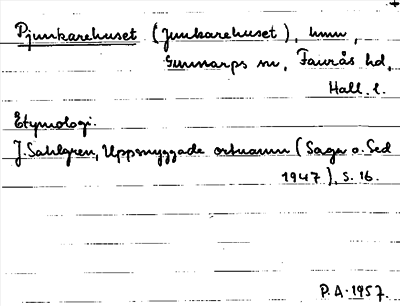 Pjunkarehuset (Junkarehuset), hmn,
Gunnarps sn, Faurås hd,
Hall. l.
Etymologi.
J. Sahlgren, Uppsnyggade ortnamn (Saga o. Sed
1947), s. 16.
P.A. 1957.